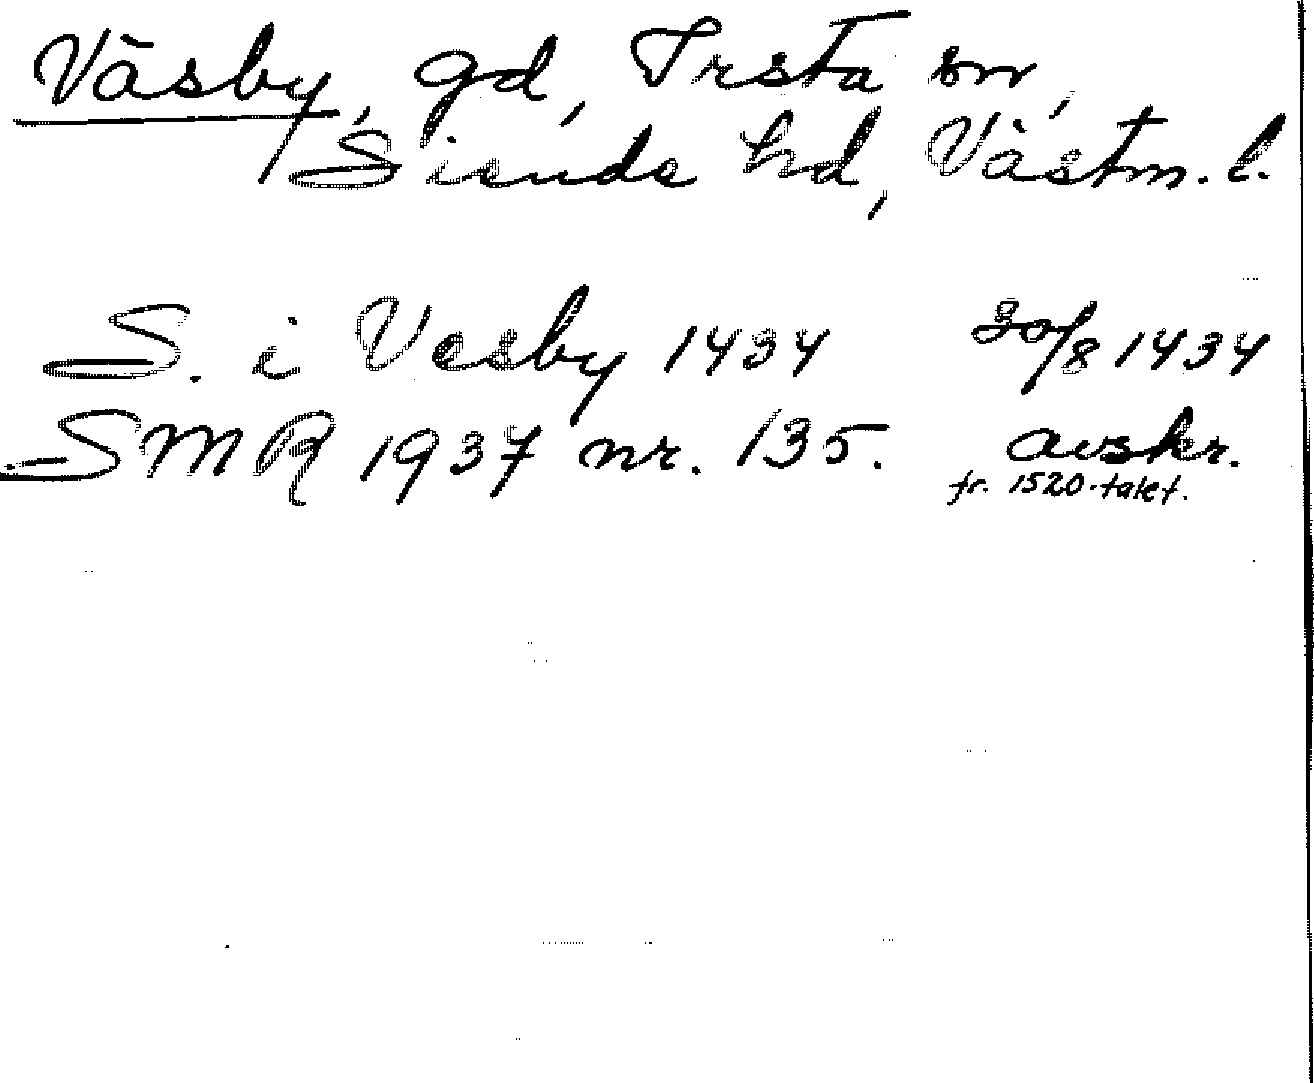 Väsby, gd, Irsta sn,
Siende hd, Västm. l.
S. i Vesby 1434 30/8 1434
SMR 1937 nr. 135. avskr.
fr. 1520-talet.